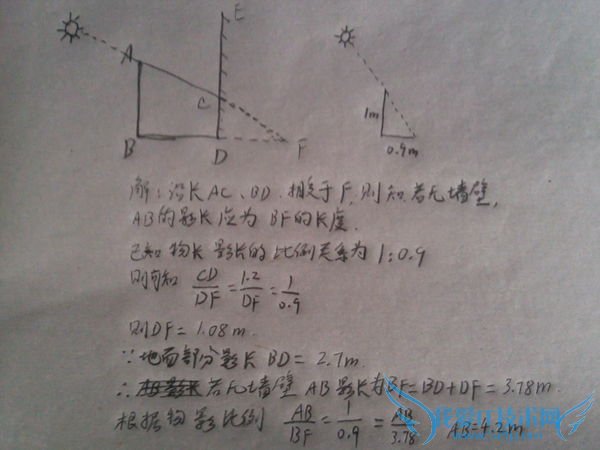 E
A
C
B
D
F
1m
0.9m
解：沿长AC、BD.相交于F,则知若无墙壁,
AB的影长应为BF的长度.
已知物长影长的比例关系为1:0.9
则可知 CD/DF=1.2/DF=1/0.9
则DF=1.08m.
∵地面部分影长BD=2.7m.
∴若无墙壁AB影长有BF=BD+DF=3.78m.
根据物影比例 AB/BF=1/0.9=AB/3.78 AB=4.2m